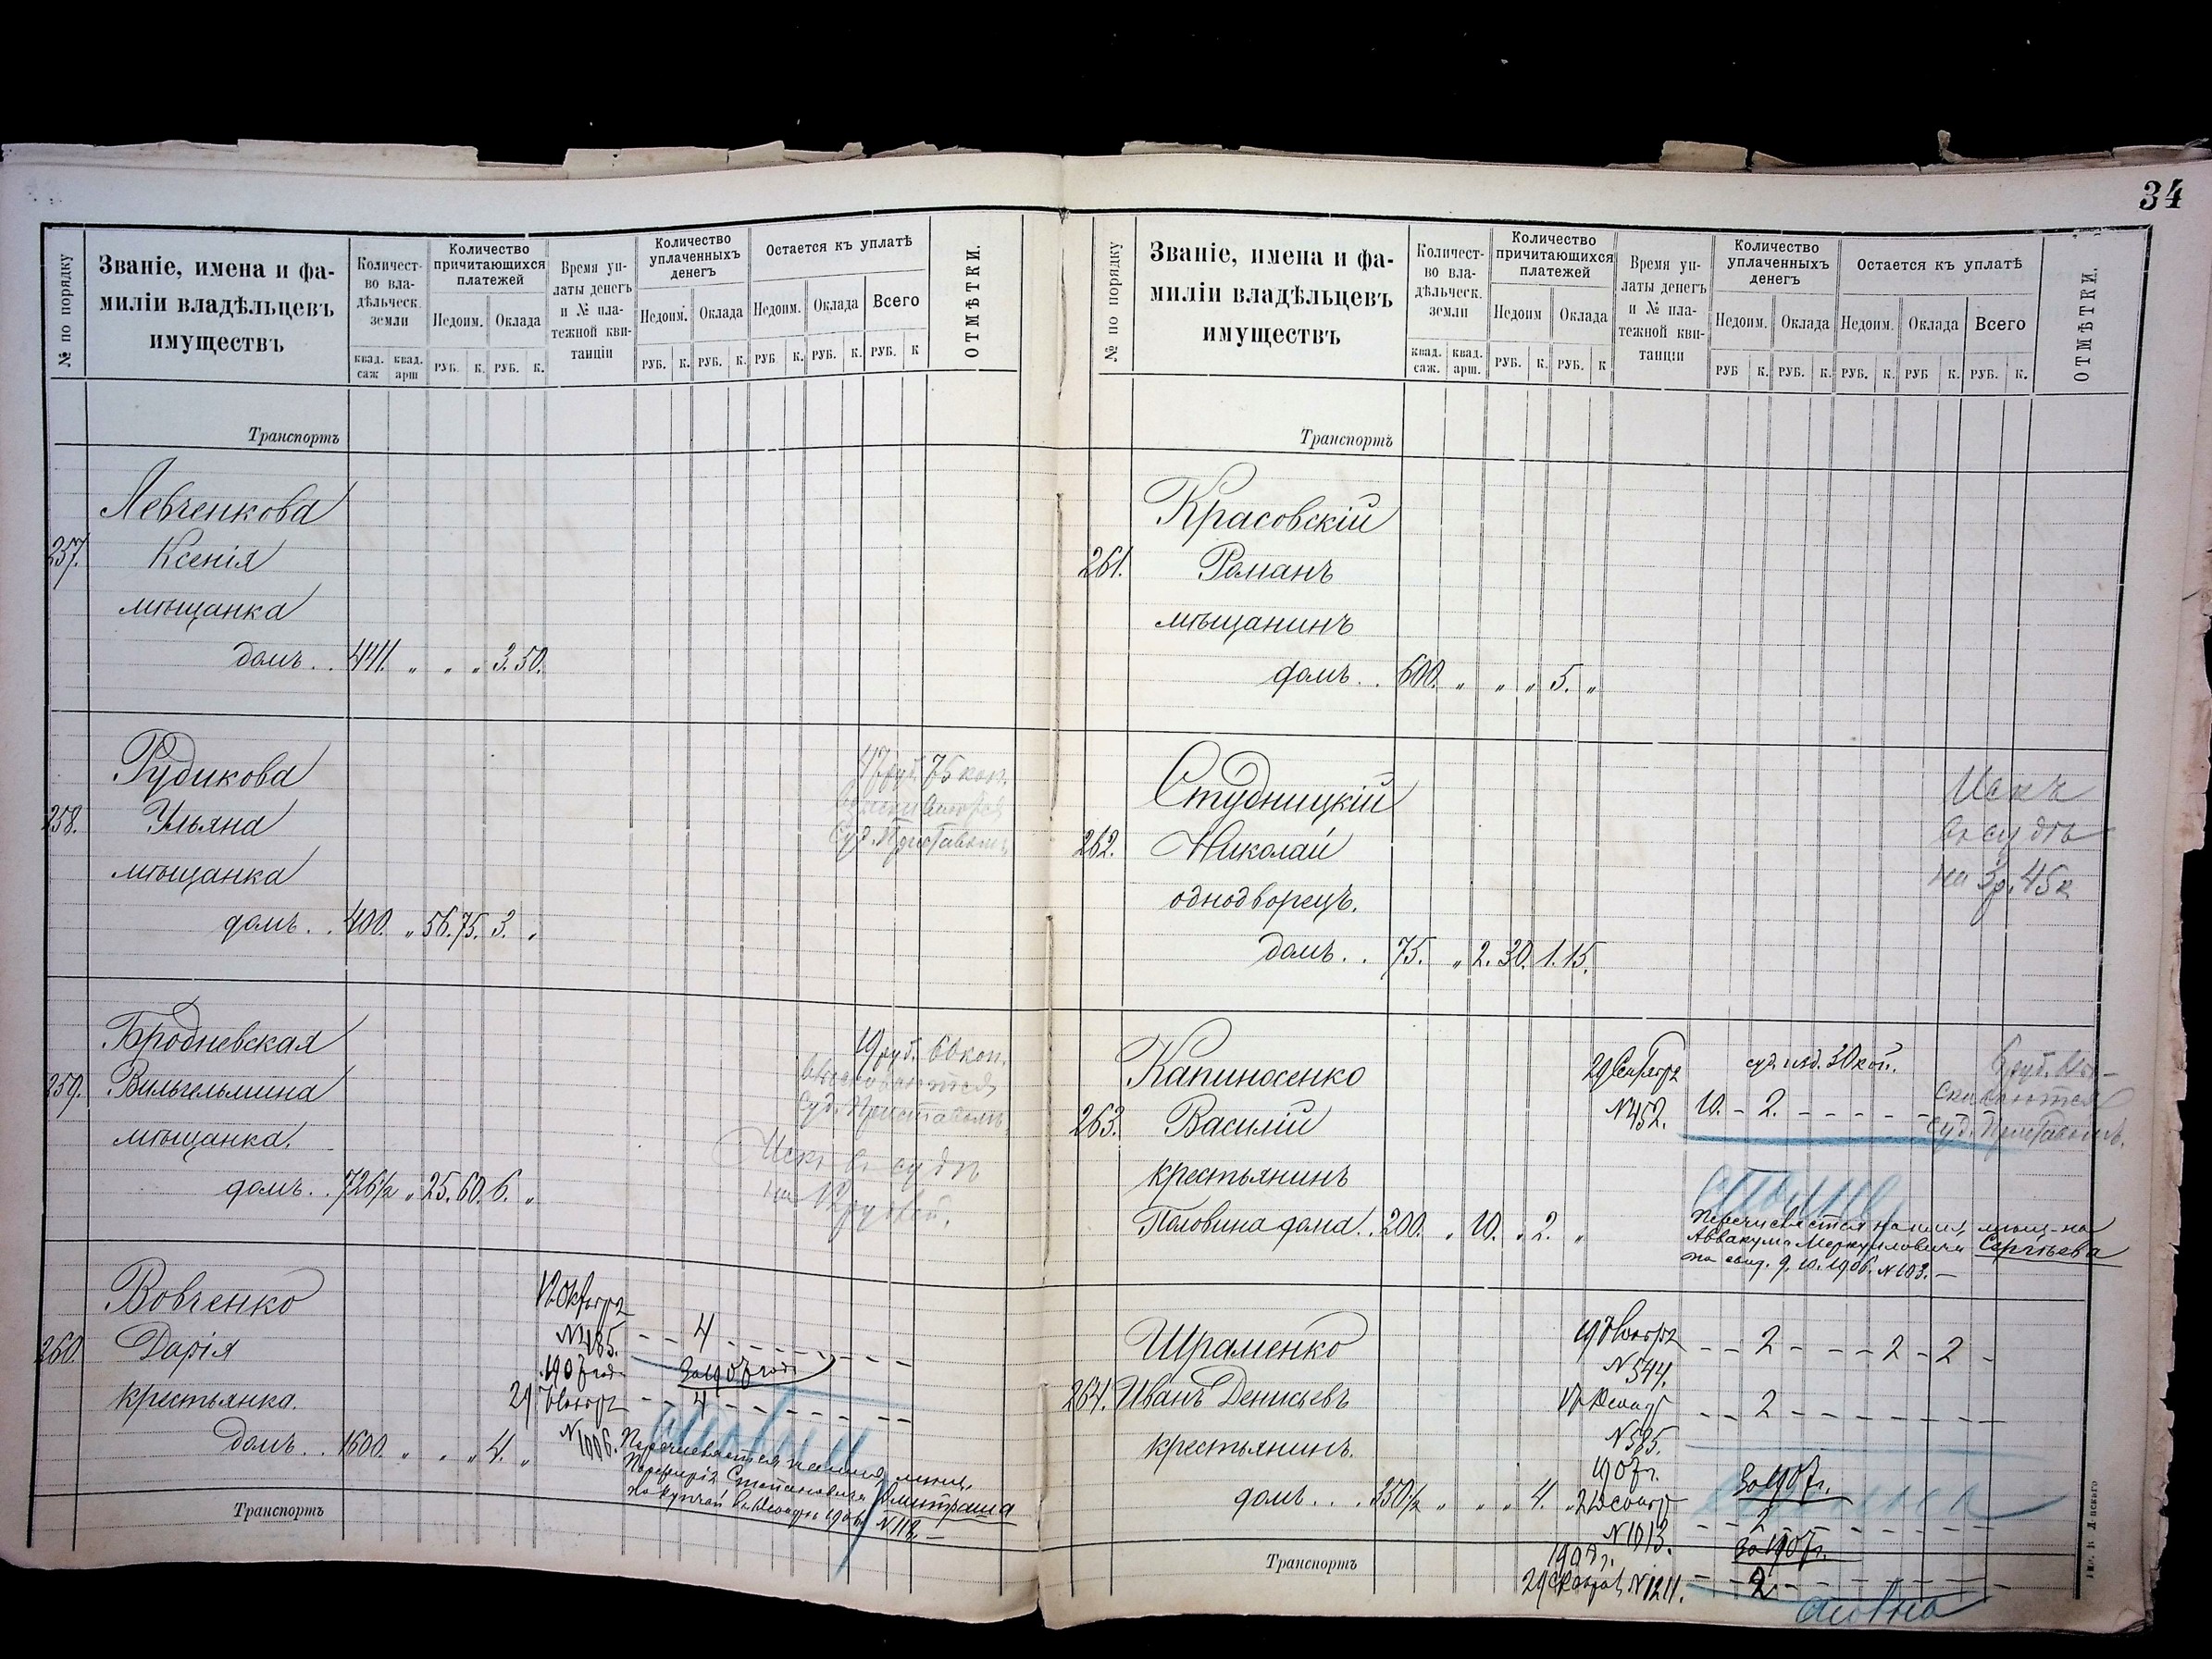 34
№ по порядку
Званіе, имена и фа-
миліи владѣльцевъ
имуществъ
Количест-
во вла-
дѣльческ.
земли
квад. саж
квад. арш
Количество
причитающихся
платежей
Недоим.
Оклада
РУБ. К. РУБ. К.
Время уп-
латы денегъ
и № пла-
тежной кви-
танціи
Количество
уплаченныхъ
денегъ
Недоим. Оклада
РУБ. К. РУБ. К.
Остается къ уплатѣ
Недоим. Оклада Всего
РУБ К. РУБ. К. РУБ. К
ОТМѢТКИ.
Транспортъ
Левченкова
257. Ксенія
мѣщанка
домъ . . 441. „ „ „ 3. 50.
Рудикова
258. Ульяна
мѣщанка
домъ . . 400. „ 56. 75. 3. „
47 руб. 75 коп.
Суд. Приставомъ
Бродневская
259. Вильгельмина
мѣщанка.
домъ . . 726½ „ 25. 60. 6. „
19 руб. 60 коп.
взыскиваются
Суд. Приставомъ
Искъ въ судѣ
на 12 рублей.
Вовченко
260. Дарія
крестьянка.
домъ . . 1600. „ „ „ 4. „
12 Октября
№ 185. – – 4 – – –
1907 год. За 1907 годъ
29 Ноября – – 4 – – –
№ 1006.
Перечисляется на имя мѣщ.
Порфирія Степановича Дмитраша
по купчей 1906 № 112. –
Транспортъ
№ по порядку
Званіе, имена и фа-
миліи владѣльцевъ
имуществъ
Количест-
во вла-
дѣльческ.
земли
квад. саж.
квад. арш.
Количество
причитающихся
платежей
Недоим Оклада
РУБ. К. РУБ. К
Время уп-
латы денегъ
и № пла-
тежной кви-
танціи
Количество
уплаченныхъ
денегъ
Недоим. Оклада
РУБ К. РУБ. К.
Остается къ уплатѣ
Недоим. Оклада Всего
РУБ. К. РУБ К. РУБ. К.
ОТМѢТКИ.
Транспортъ
Красовскій
261. Романъ
мѣщанинъ
домъ . . 600. „ „ „ 5. „
Студницкій
262. Николай
однодворецъ.
домъ . . 75. „ 2. 30. 1. 15.
Искъ
въ судѣ
на 3 р. 45 к
Капиносенко
263. Василій
крестьянинъ
Половина дома . . 200. „ 10. „ 2. „
29 Сентября суд. изд. 30 коп.
№ 452. 10. – 2. – – – –
6 руб. взы-
скиваются
Суд. Приставомъ.
Перечисляется на имя мѣщ-на
Аввакума Меркуловича Сергѣева
по свид. 9. 10. 1906. № 103. –
Шраменко
264. Иванъ Денисьевъ
крестьянинъ.
домъ . . . 350½ „ „ „ 4. „
19 Ноября – – 2 – – – 2 – 2 –
№ 544.
– – 2 – – –
№ 585.
1907 г. За 1907 г.
22 Декабр
№ 1013. – – 2 – – –
За 1907 г.
№ 1211. – – 2 – – –
Транспортъ